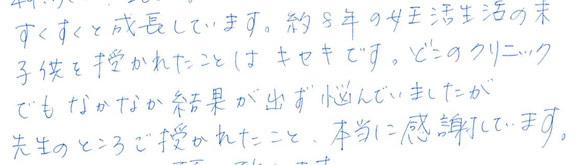 すくすくと成長しています。約8年の妊活生活の末
子供を授かれたことはキセキです。どこのクリニック
でもなかなか結果が出ず悩んでいましたが
先生のところで授かれたこと、本当に感謝しています。